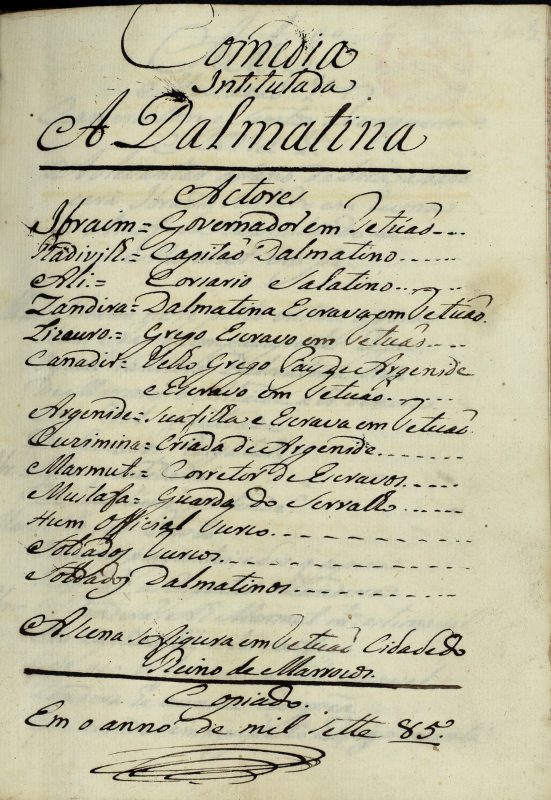 Comedia
Intitulada
A Dalmatina
Actores
Ibraim = Governador em Tetuaõ
Radivill = Capitaõ Dalmatino
Ali = Corsario Salatino
Zandira = Dalmatina Escrava em Tetuaõ
Lizauro = Grego Escravo em Tetuaõ
Canadir = Velho Grego Pay de Argenide
e Escravo em Tetuaõ
Argenide = sua filla e Escrava em Tetuaõ
Curimina = Criada de Argenide
Marmut = Corretor de Escravos
Mustafa = Guarda do Serrallo
Hum Official Turco
Soldados Turcos
Soldados Dalmatinos
A Scena se figura em Tetuaõ Cidade do
Reino de Marrocos.
Copiado.
Em o anno de mil sette 85º